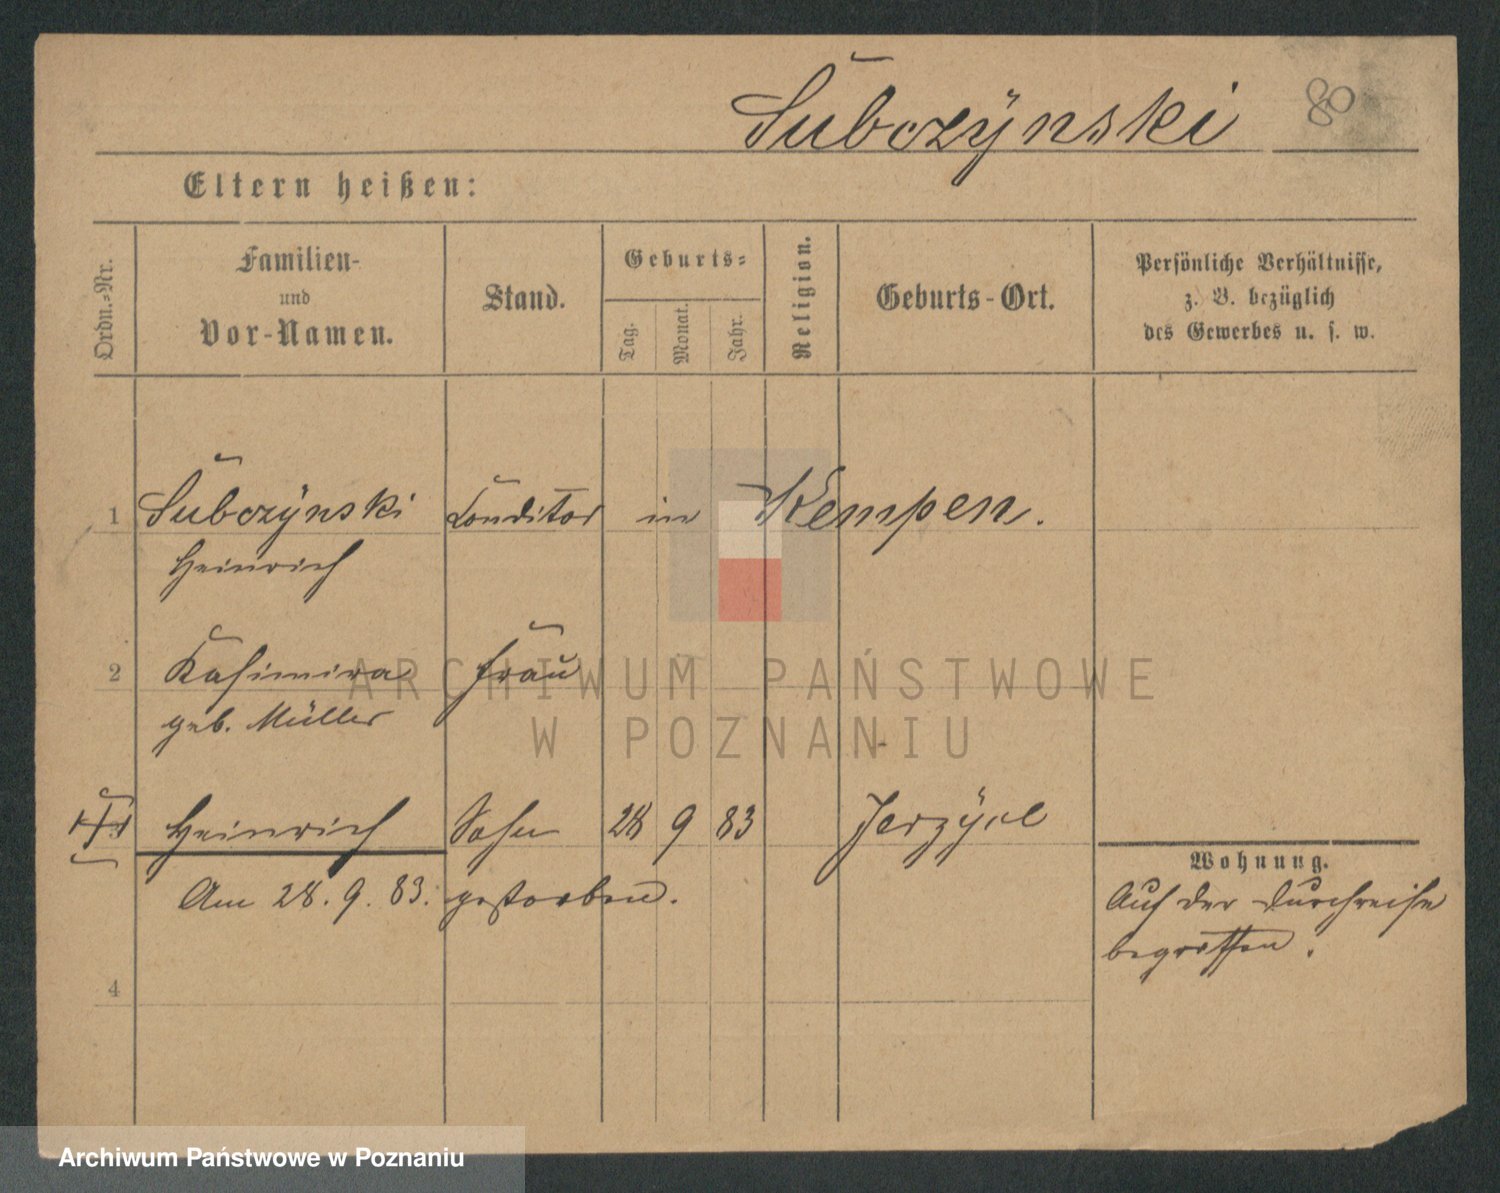 Subczÿnski 80
Eltern heißen:
Ordn.-Nr.
Familien-
und
Vor-Namen.
Stand.
Geburts-
Tag.
Monat.
Jahr.
Religion.
Geburts-Ort.
Persönliche Verhältnisse,
z. B. bezüglich
des Gewerbes u. s. w.
1 Subczÿnski Conditor in Kempen.
Heinrich
2 Kasimira Frau
geb. Müller
3 Heinrich Sohn 28 9 83
Am 28. 9. 83. gestorben.
Wohnung.
Auf der Durchreise
begriffen.
4
ARCHIWUM PAŃSTWOWE
W POZNANIU
Archiwum Państwowe w Poznaniu